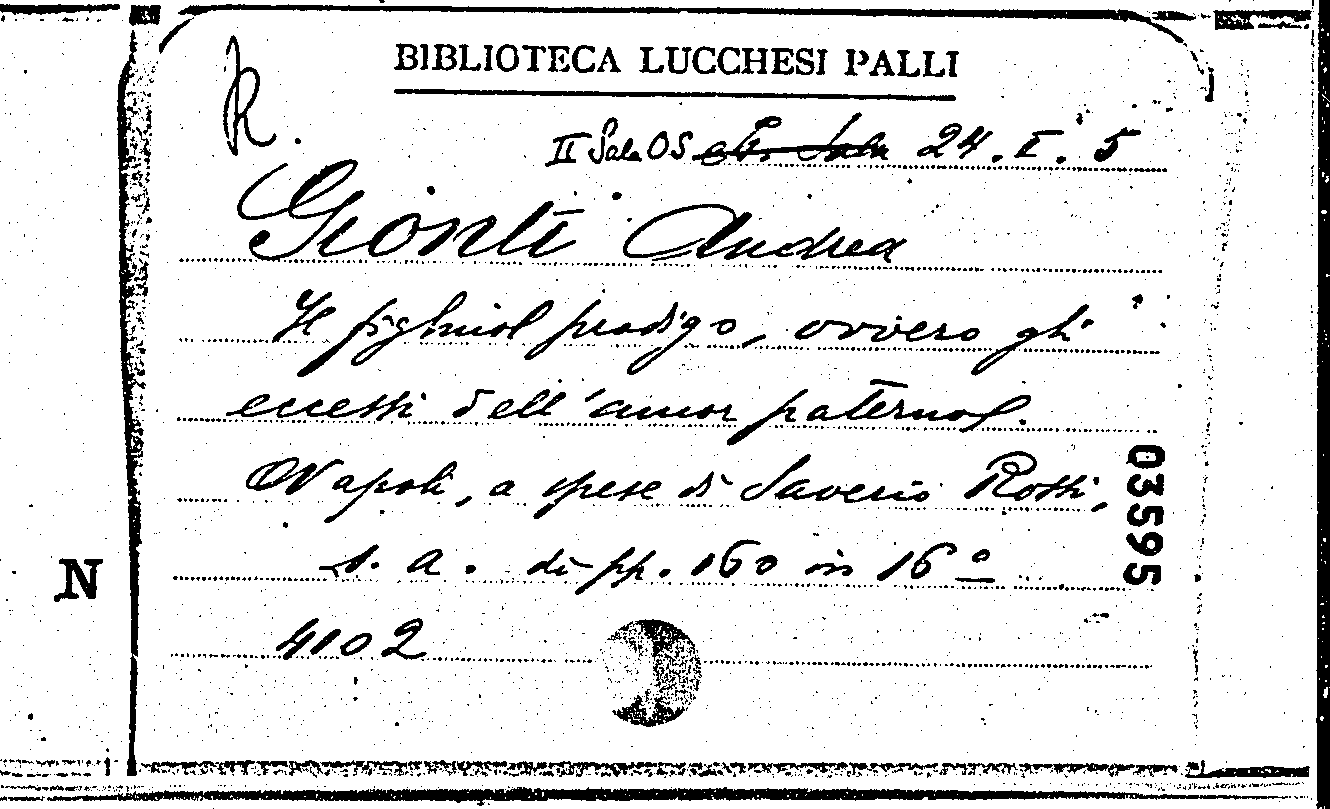 BIBLIOTECA LUCCHESI PALLI
R.
II Sala OS Sala 24. I. 5
Gionti Andrea
Il figliuol prodigo, ovvero gli
eccessi dell'amor paterno.
Napoli, a spese di Saverio Rossi,
s. a. di pp. 160 in 16º
4102
03595
N